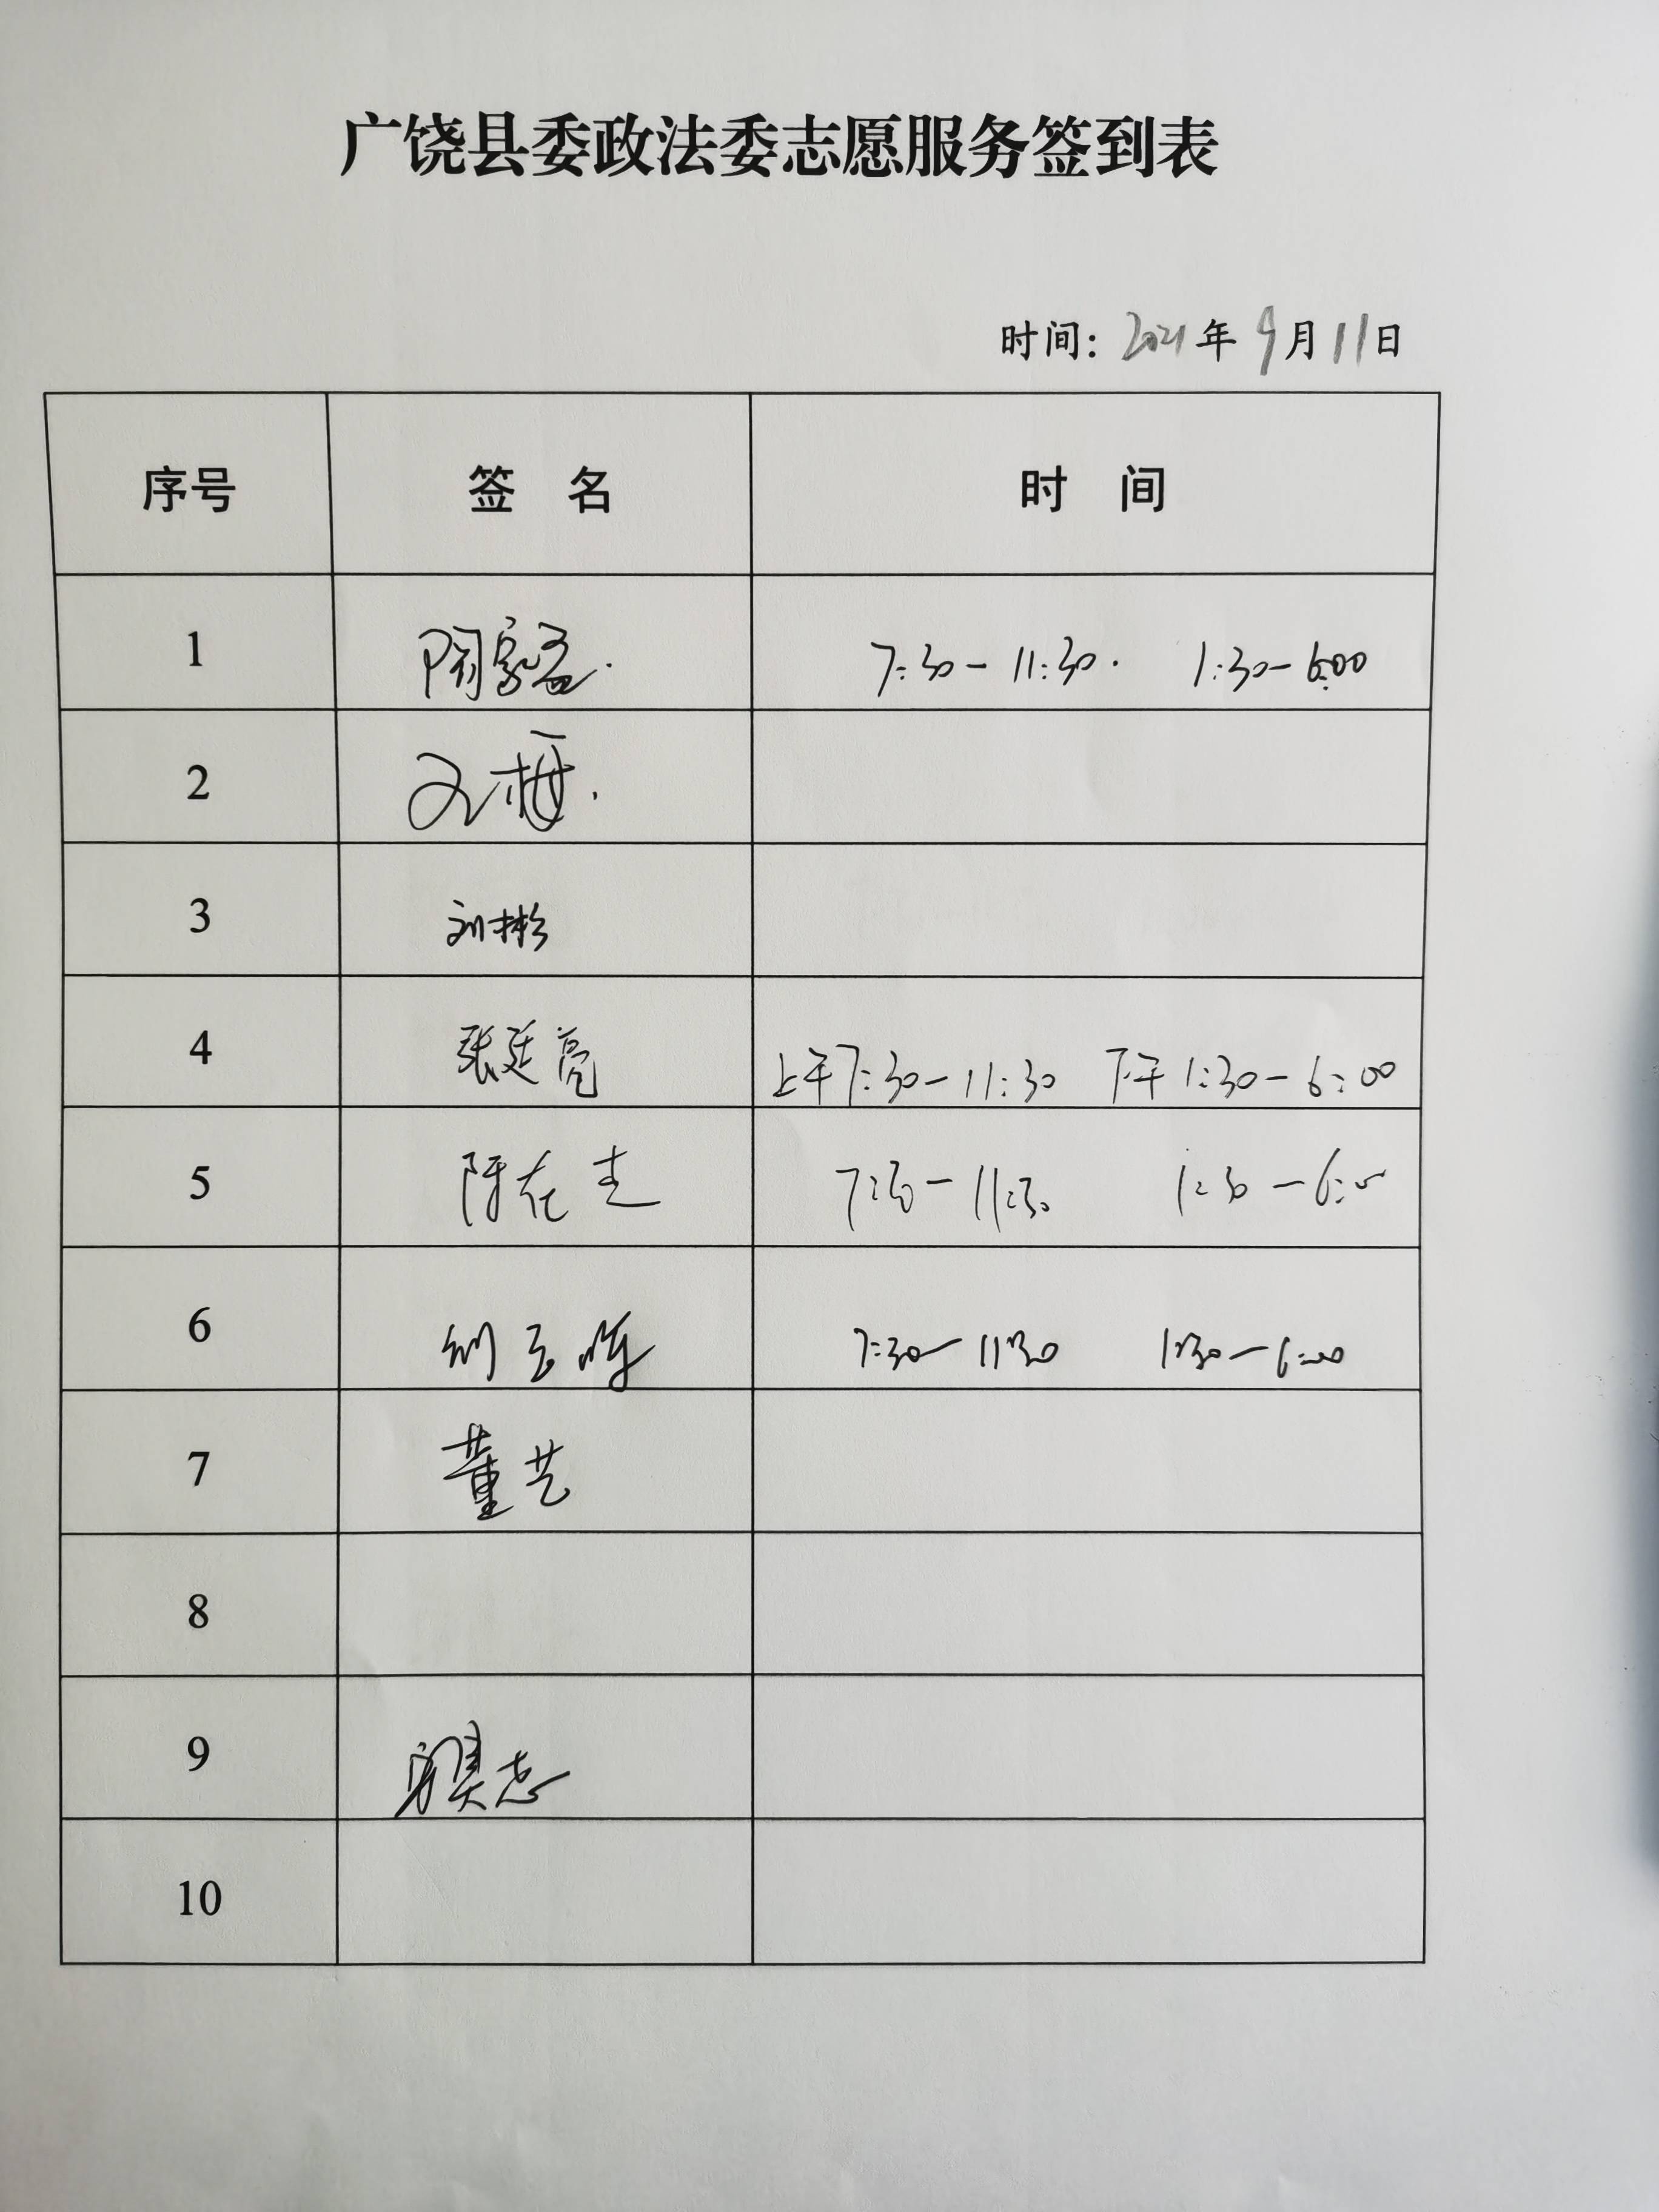 广饶县委政法委志愿服务签到表
时间：2021年9月11日
序号 签 名 时 间
1 7:30-11:30. 1:30-6:00
2
3 刘彬
4 张廷亮 上午7:30-11:30 下午1:30-6:00
5 7:30-11:30 1:30-6:00
6 7:30-11:30 1:30-6:00
7 董艺
8
9
10